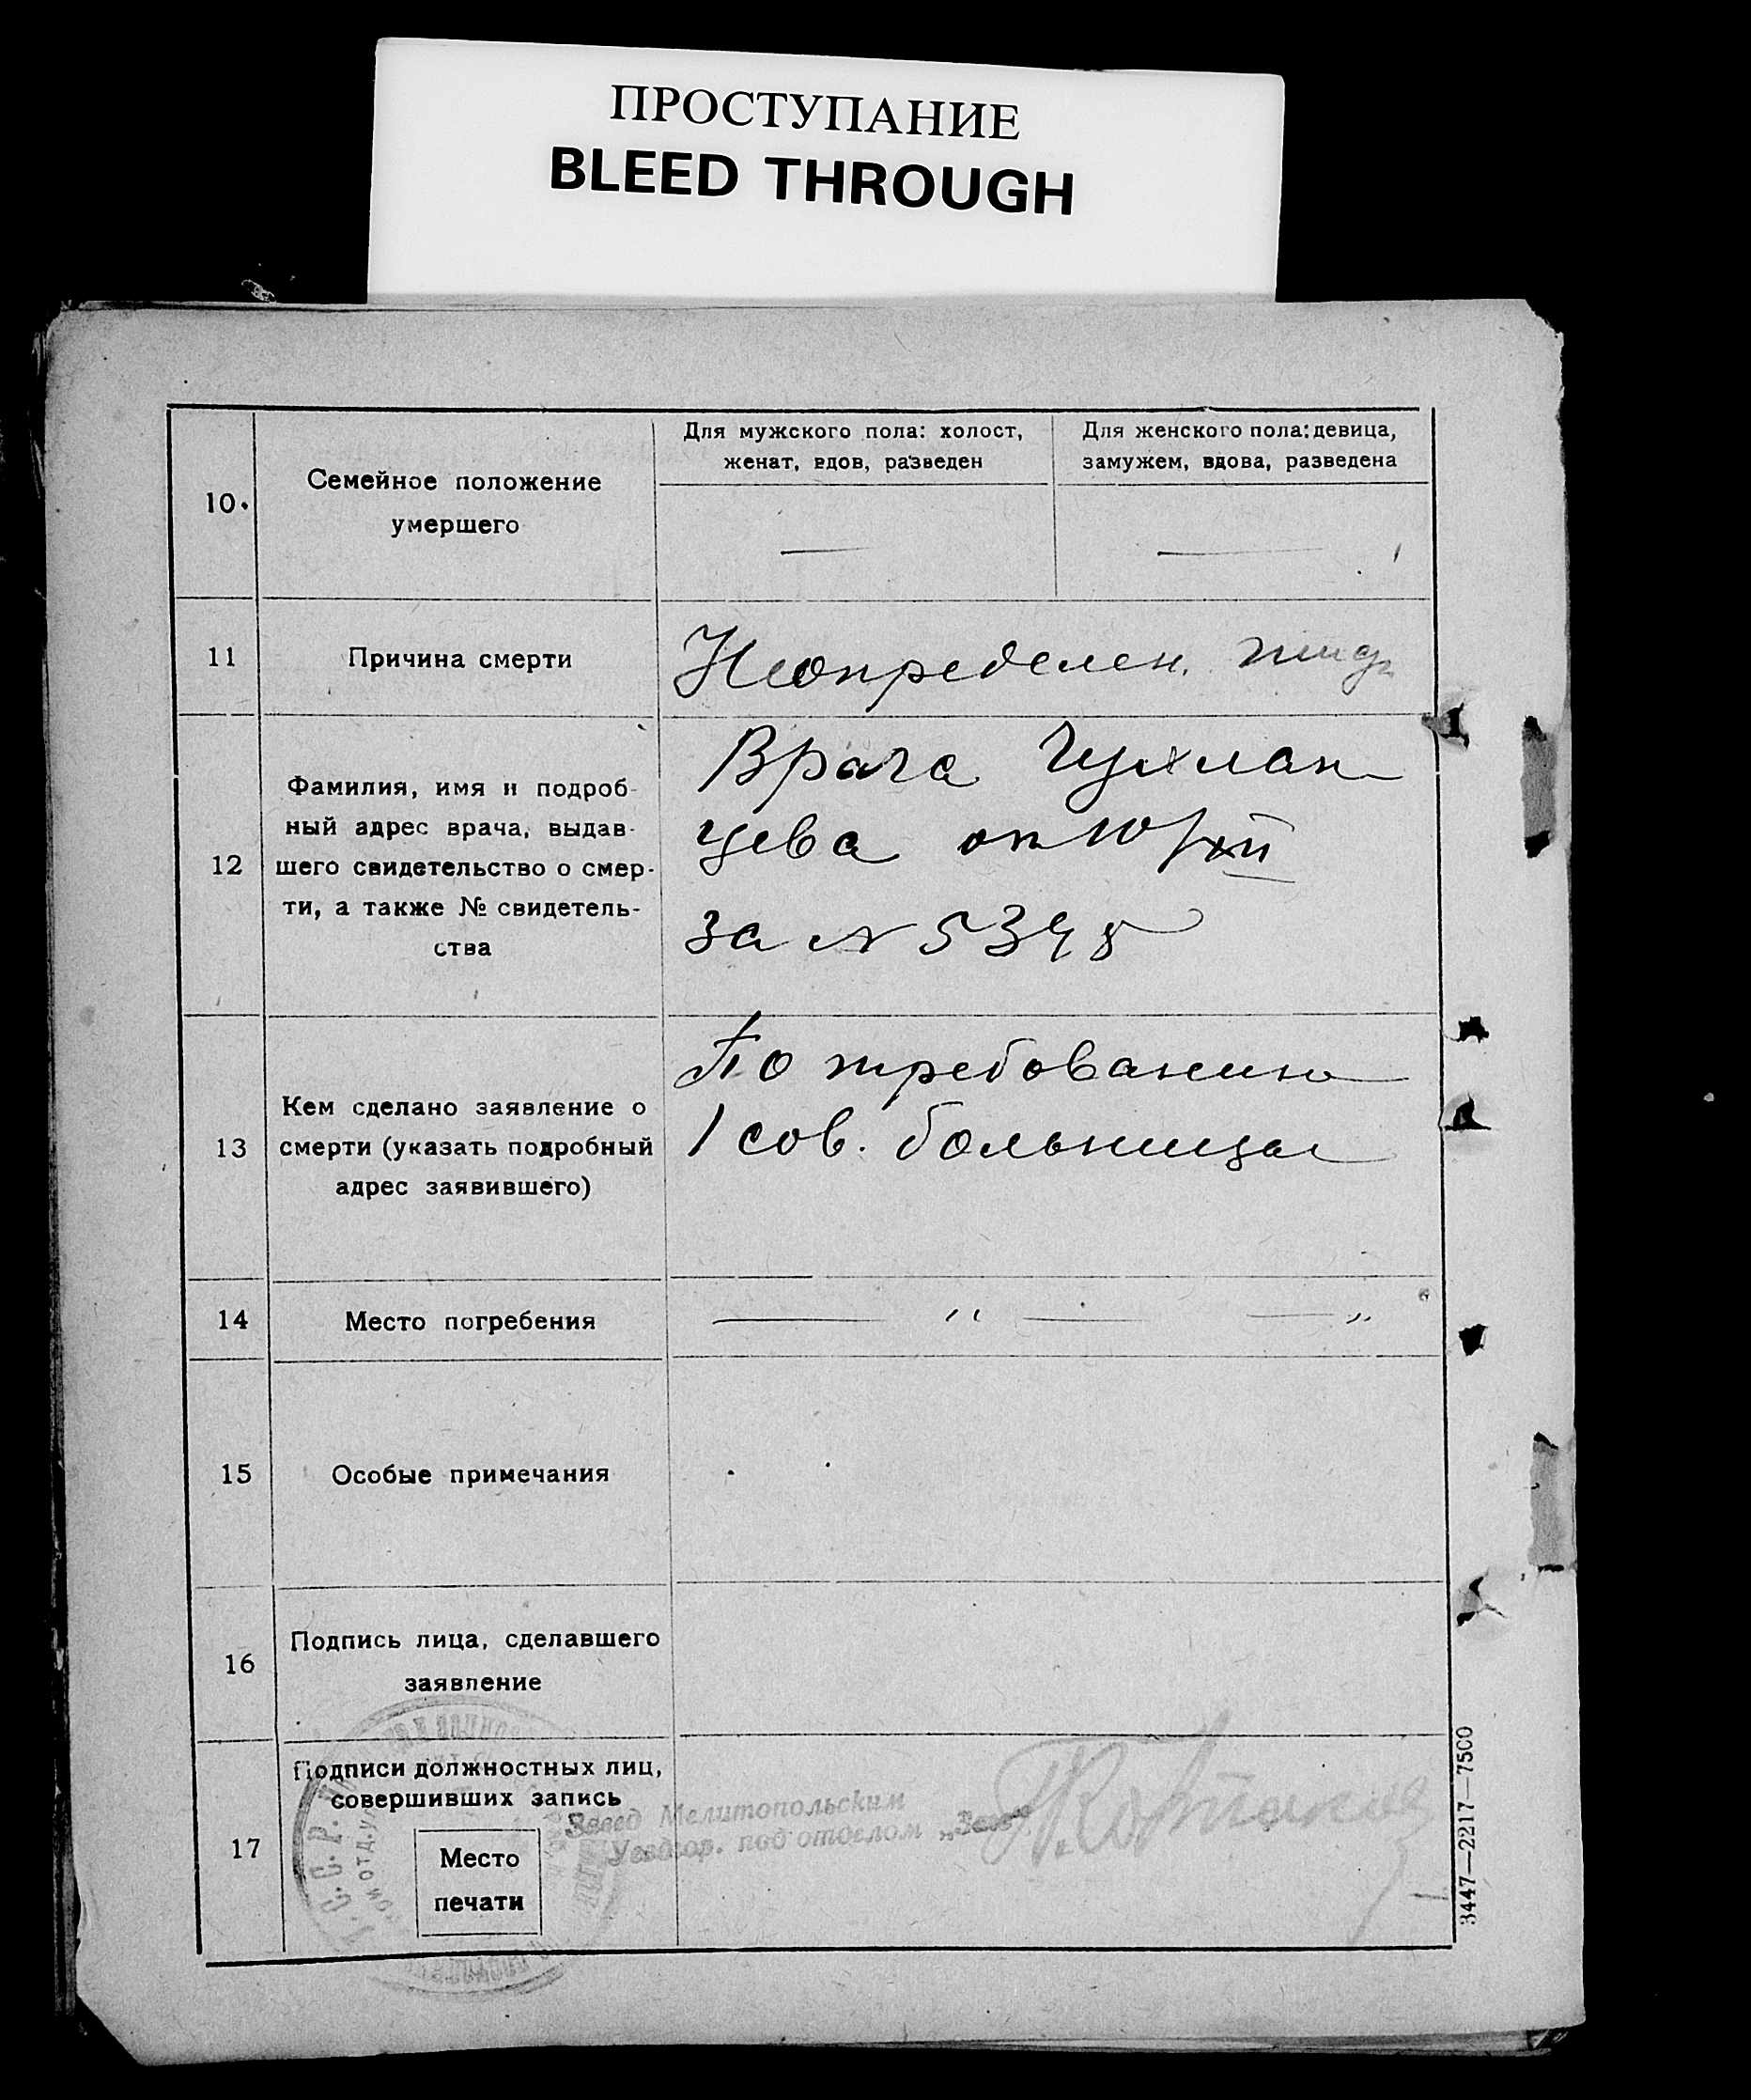 ПРОСТУПАНИЕ
BLEED THROUGH
10.
Семейное положение
умершего
Для мужского пола: холост,
женат, вдов, разведен
Для женского пола: девица,
замужем, вдова, разведена
11
Причина смерти
Неопределен.
12
Фамилия, имя и подроб-
ный адрес врача, выдав-
шего свидетельство о смер-
ти, а также № свидетель-
ства
Врача
цева от 10/XII
за №
13
Кем сделано заявление о
смерти (указать подробный
адрес заявившего)
По требованию
1 сов. больницы
14
Место погребения
15
Особые примечания
16
Подпись лица, сделавшего
заявление
17
Подписи должностных лиц,
совершивших запись
Место
печати
Завед Мелитопольским
под отделом
3447—2217—7500